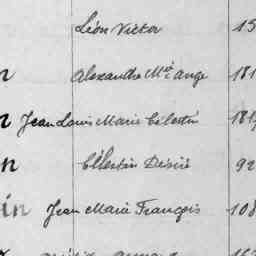 Léon Victor 15
n Alexandre Mie ange 181
n Jean Louis Marie Célestin 181
n Célestin Désiré 92
in Jean Marie François 108